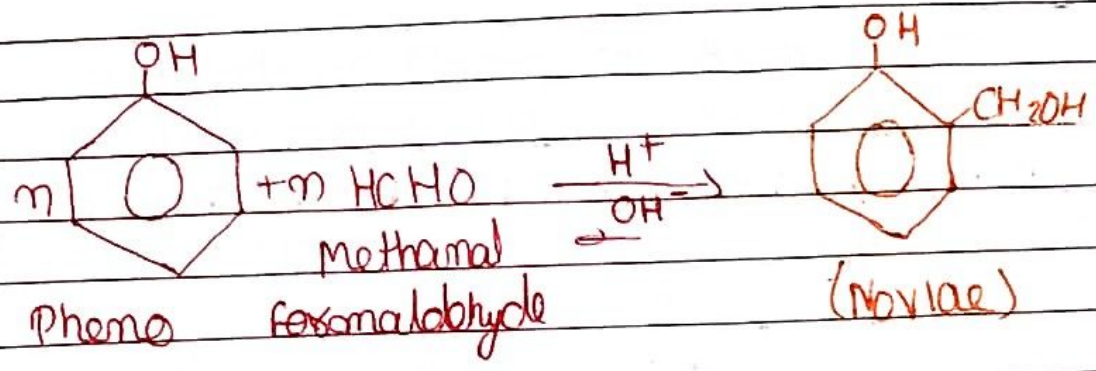 OH OH
CH2OH
n +n HCHO H+
OH-
Methanal
Pheno formaldohyde (Novlae)